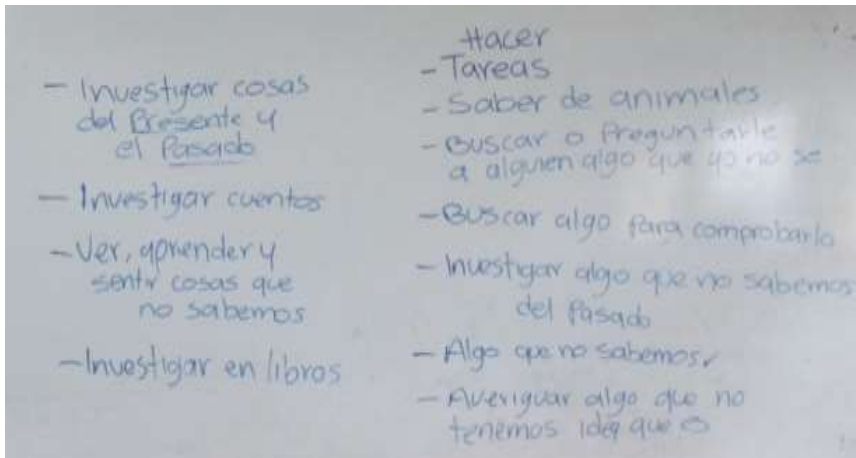 - Investigar cosas
del Presente y
el Pasado
- Investigar cuentos
- Ver, aprender y
sentir cosas que
no sabemos
- Investigar en libros
Hacer
- Tareas
- Saber de animales
- Buscar o Preguntarle
a alguien algo que yo no se
- Buscar algo para comprobarlo
- Investigar algo que no sabemos
del Pasado
- Algo que no sabemos
- Averiguar algo que no
tenemos idea que es